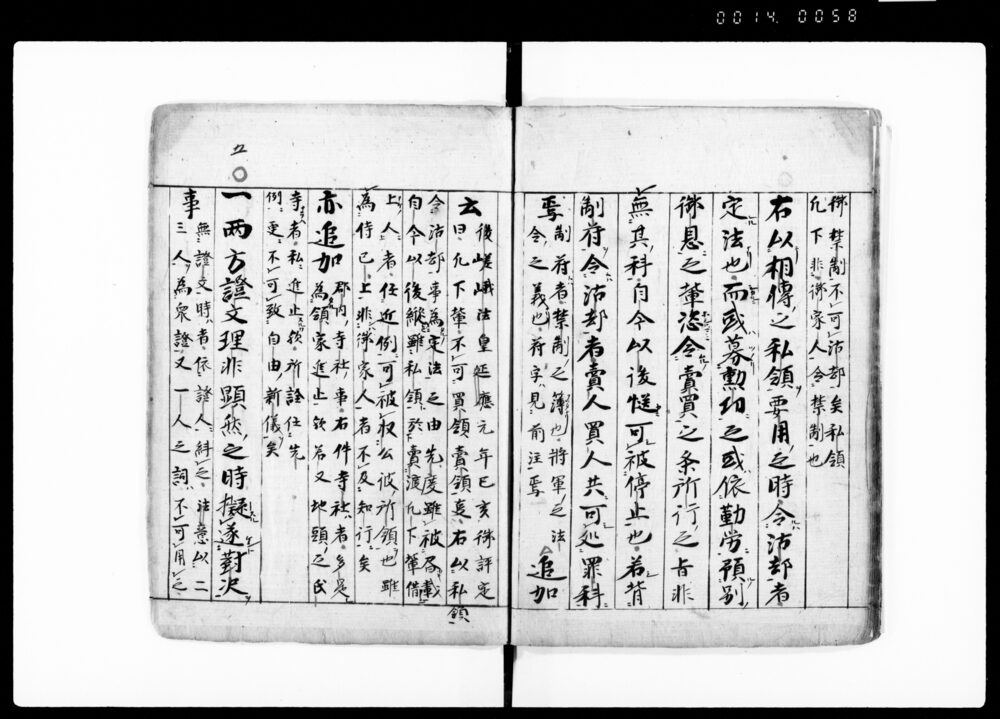 0014. 0058
御禁制不可沽却矣私領
凡下非御家人令禁制也
右以相傳之私領要用之時令沽却者
定法也而或募勲功之或依勤労預別
御恩之輩恣令賣買之条所行之旨非
無其科自今以後慥可被停止也若背
制符令沽却者賣人買人共可処罪科
焉制符者禁制之簿也将軍之法
令之義也符字見前注焉 追加
云後嵯峨法皇延應元年己亥御評定
曰凡下輩不可買領賣領変右以私領
令沽却事為定法之由先度雖被載
自今以後縦雖私領於賣渡凡下輩借
上人者任近例可被収公彼所領也雖
為侍已上非御家人者不及知行矣
亦追加郡内寺社事右件寺社者多是
為領家進止欤若又地頭之氏
寺者私進止欤所詮任先
例更不可致自由新儀矣
五
一両方證文理非顕然之時擬遂對決
事無證文時者依證人糾之法意以二
三人為衆證又一人之詞不可用之